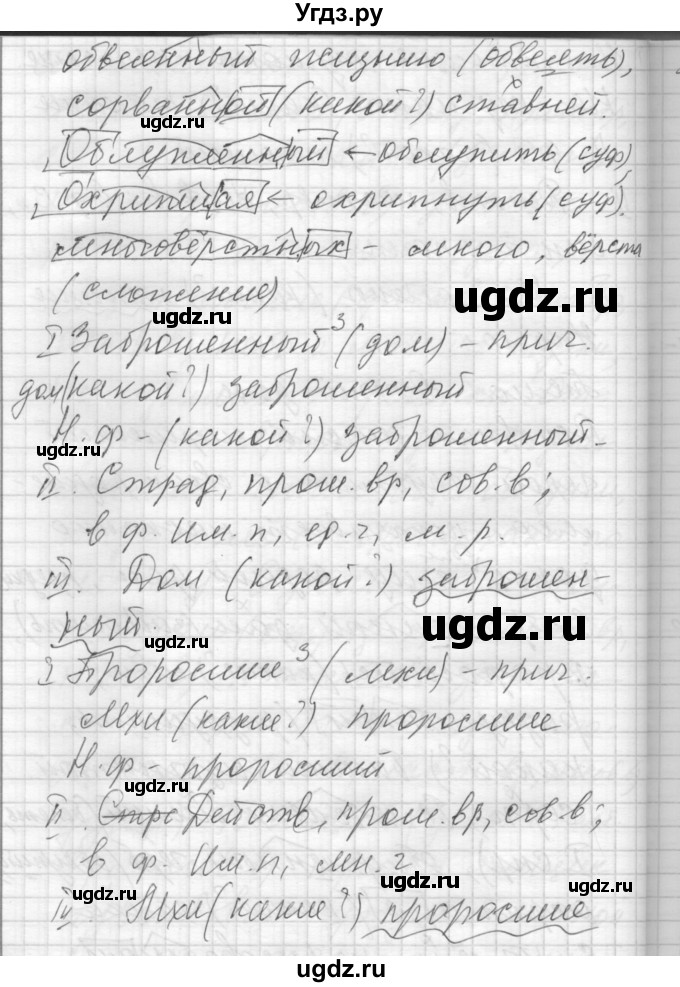 Угдз.ру
обвеянный жизнию (обвеять),
сорванной (какой?) ставней.
Облупленный ← облупить (суф),
Охрипшая ← охрипнуть (суф).
многовёрстных - много, вёрста
(сложение)
I Заброшенный³ (дом) - прич.
дом (какой?) заброшенный
Н.ф - (какой?) заброшенный.
II. Страд, прош. вр, сов. в;
в ф. Им. п, ед. ч, м. р.
III. Дом (какой?) заброшен-
ный.
I Проросшие³ (мхи) - прич.
Мхи (какие?) проросшие
Н.ф - проросший
II. Стра Действ, прош. вр, сов. в;
в ф. Им. п, мн. ч
IV. Мхи (какие?) проросшие
ugdz.ru
ugdz.ru
ugdz.ru
ugdz.ru
ugdz.ru
ugdz.ru
ugdz.ru
ugdz.ru
ugdz.ru
ugdz.ru
ugdz.ru